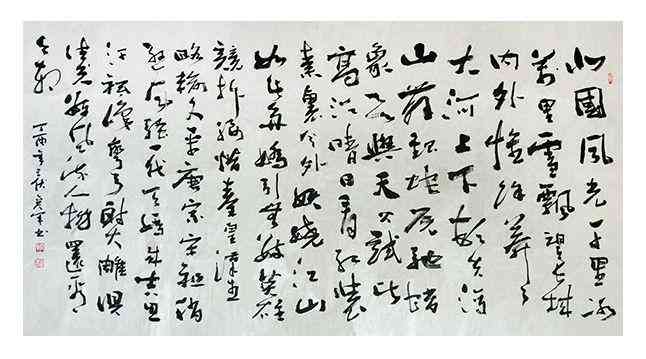 北國風光千里冰
萬里雪飄望長城
内外惟餘莽々
大河上下頓失滔
山舞銀蛇原馳蠟
象欲與天公試比
高須晴日看紅裝
素裹分外妖嬈江山
如此多嬌引無數英雄
競折腰惜秦皇漢武
略輸文采唐宗宋祖稍
遜風騷一代天驕成吉思
汗祇識彎弓射大雕俱
往矣數風流人物還看
今朝
丁酉年秋書